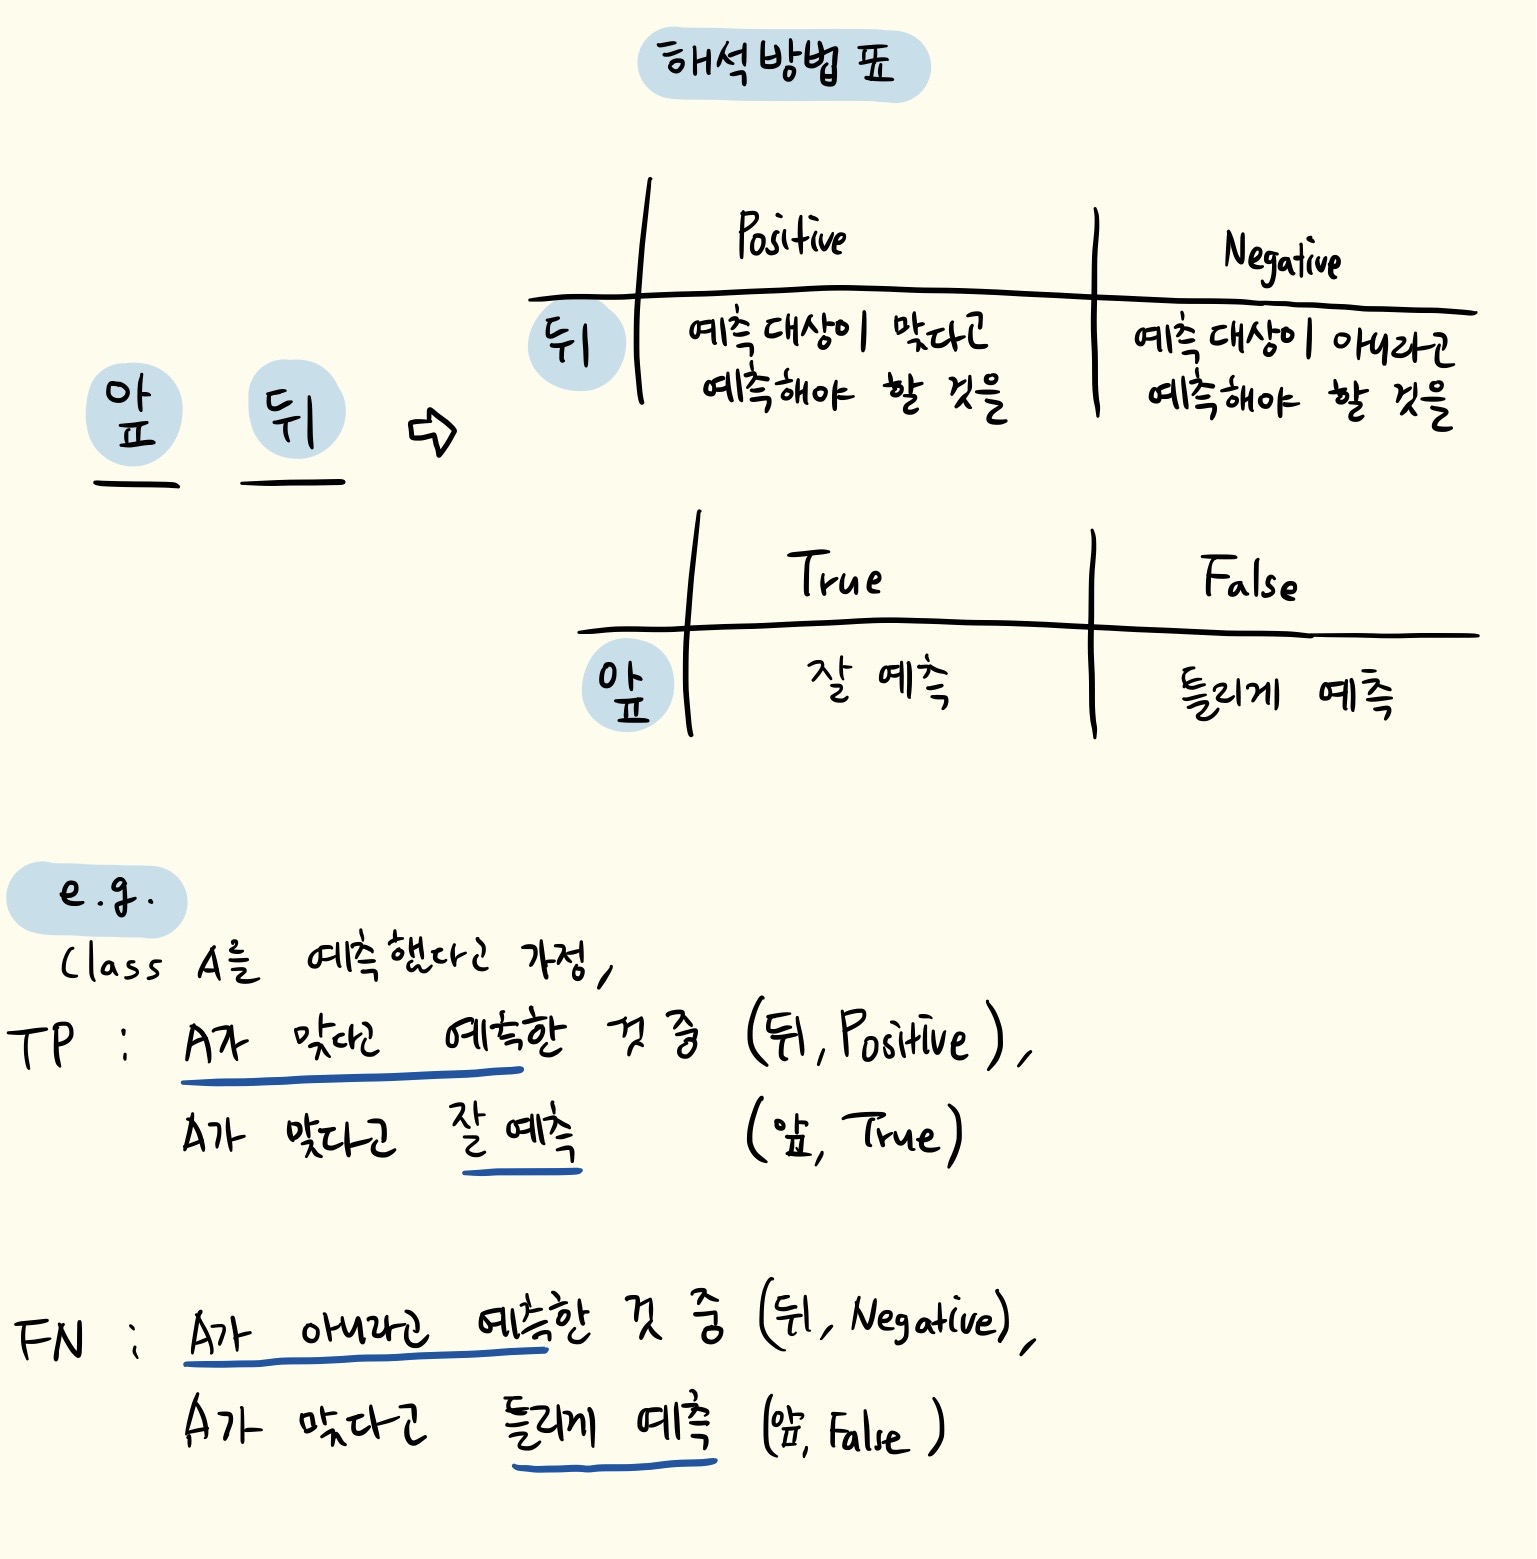 해석방법 표
Positive Negative
뒤 예측 대상이 맞다고 예측 대상이 아니라고
예측해야 할 것을 예측해야 할 것을
앞 뒤
True False
앞 잘 예측 틀리게 예측
e.g.
Class A를 예측했다고 가정,
TP : A가 맞다고 예측한 것 중 (뒤, Positive),
A가 맞다고 잘 예측 (앞, True)
FN : A가 아니라고 예측한 것 중 (뒤, Negative),
A가 맞다고 틀리게 예측 (앞, False)